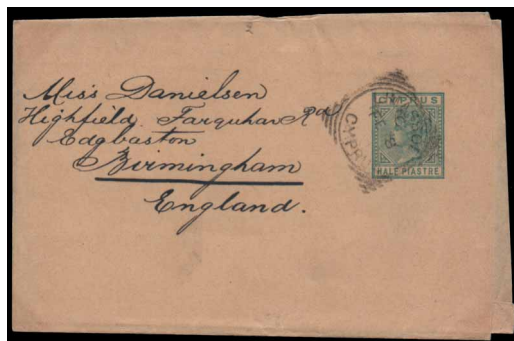 Miss Danielsen
Highfield, Farquhar Rd
Edgbaston
Birmingham
England.
CYPRUS
HALF PIASTRE
CYPRUS